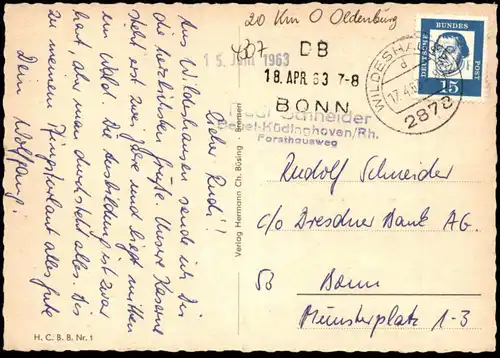 20 Km O Oldenburg
407
15. JUNI 1963
DB
18. APR. 63 7-8
BONN
DEUTSCHE BUNDES POST
15
WILDESHAUSEN
d
17.4.63
2878
Rudi Schneider
Beuel-Küdinghoven/Rh.
Forsthausweg
Lieber Rudi!!
Aus Wildeshausen sende ich Dir
die herzlichsten Grüße. Unsere Kaserne
steht erst zwei Jahre und liegt mitten
im Wald. Die Ausbildung ist zwar
hart, aber man durchsteht alles. Bis
zu meinem Pfingsturlaub alles Gute
Dein Wolfgang.
Verlag Hermann Ch. Büsing · Bremen
Rudolf Schneider
c/o Dresdner Bank AG.
53 Bonn
Münsterplatz 1-3
H. C. B. B. Nr. 1